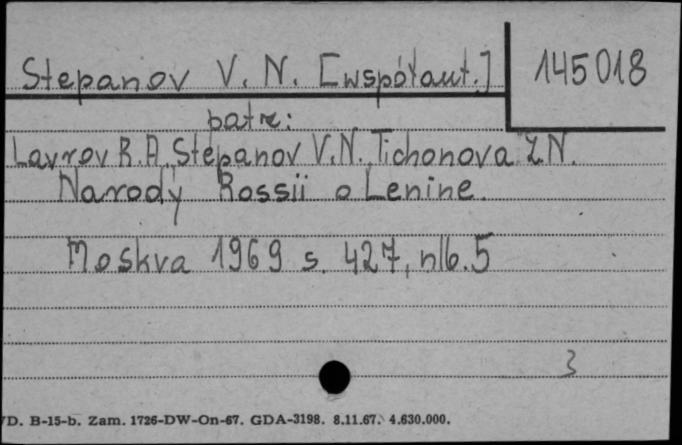 Stepanov V. N. [współaut.]
145018
patrz:
Lavrov R. A. Stepanov V. N. Tichonova Z. N.
Narody Rossii o Lenine.
Moskva 1969 s. 427, nlb. 5
3
/D. B-15-b. Zam. 1726-DW-On-67. GDA-3198. 8.11.67. 4.630.000.